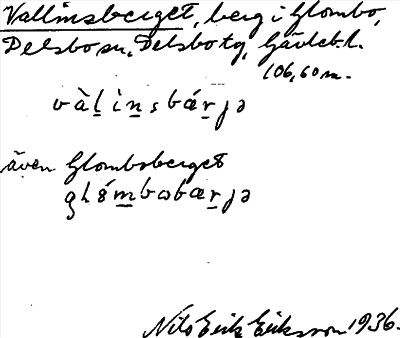 Vallinsberget, berg i Glombo,
Delsbo sn, Delsbo tg, Gävleb. l.
106,60 m.
và̱lìṉsbǽṟjə
även Glombsberget
glǿm̱bɷbæṟjə
Nils Erik Eriksson 1936.